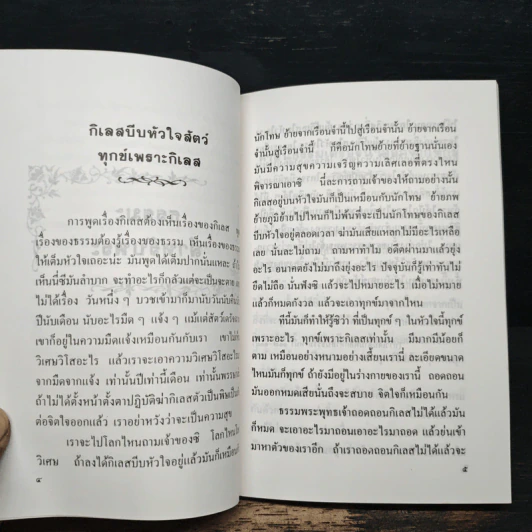 กิเลสบีบหัวใจสัตว์
ทุกข์เพราะกิเลส
การพูดเรื่องกิเลสต้องเห็นเรื่องของกิเลส
เรื่องของธรรมต้องรู้เรื่องของธรรม เห็นเรื่องของ
ให้เต็มหัวใจเถอะน่ะ มันพูดได้เต็มปากนั่นแหละ ถ้า
เห็นนี่ซีมันลำบาก จะทำอะไรก็กลัวแต่จะเป็นจะตาย
ไม่ได้เรื่อง วันหนึ่ง ๆ บวชเข้ามาก็มานับวันนับคืน
ปีนับเดือน นับอะไรมืด ๆ แจ้ง ๆ แม้แต่สัตว์เดรัจฉาน
เขาก็อยู่ในความมืดแจ้งเหมือนกันกับเรา เขาไม่เห็น
วิเศษวิโสอะไร แล้วเราจะเอาความวิเศษวิโสอะไร
จากมืดจากแจ้ง เท่านั้นปีเท่านี้เดือน เท่านั้นพรรษา
ถ้าไม่ได้ตั้งหน้าตั้งตาปฏิบัติฆ่ากิเลสตัวเป็นพิษเป็นภัย
ต่อจิตใจออกแล้ว เราอย่าหวังว่าจะเป็นความสุข
เราจะไปโลกไหนถามเจ้าของซิ โลกไหน
วิเศษ ถ้าลงได้กิเลสบีบหัวใจอยู่แล้วมันก็เหมือน
๔
นักโทษ ย้ายจากเรือนจำนี้ไปสู่เรือนจำนั้น ย้ายจากเรือน
จำนั้นสู่เรือนจำนี้ ก็คือนักโทษย้ายที่ย้ายฐานนั่นเอง
มันมีความสุขความเจริญความเลิศเลอที่ตรงไหน
พิจารณาเอาซิ นี่ละการถามเจ้าของให้ถามอย่างนั้น
กิเลสอยู่บนหัวใจมันก็เป็นเหมือนกับนักโทษ ย้ายภพ
ย้ายภูมิย้ายไปไหนก็ไม่พ้นที่จะเป็นนักโทษของกิเลส
บีบหัวใจอยู่ตลอดเวลา ฆ่ามันเสียแหลกไม่มีอะไรเหลือ
เลย นั่นละไม่ถาม ถามหาทำไม อดีตผ่านมาแล้วยุ่ง
อะไร อนาคตยังไม่มาถึงยุ่งอะไร ปัจจุบันก็รู้เท่าทันไม่
ยึดไม่ถือ นั่นฟังซิ แล้วจะไปหมายอะไร เมื่อไม่หมาย
แล้วก็หมดกังวล แล้วจะเอาทุกข์มาจากไหน
ทีนี้มันก็ทำให้รู้ซิว่า ที่เป็นทุกข์ ๆ ในหัวใจนี้ทุกข์
เพราะอะไร ทุกข์เพราะกิเลสเท่านั้น มีมากมีน้อยก็
ตาม เหมือนอย่างหนามอย่างเสี้ยนเรานี่ ละเอียดขนาด
ไหนมันก็ทุกข์ ถ้ายังมีอยู่ในร่างกายของเรานี่ ถอดถอน
มันออกหมดเสียนั่นถึงจะสบาย จิตใจก็เหมือนกัน
ธรรมพระพุทธเจ้าถอดถอนกิเลสไม่ได้แล้วมัน
ก็หมด จะเอาอะไรมาถอนเอาอะไรมาถอด แล้วย่นเข้า
มาหาตัวของเราอีก ถ้าเราถอดถอนกิเลสไม่ได้แล้วจะ
๕